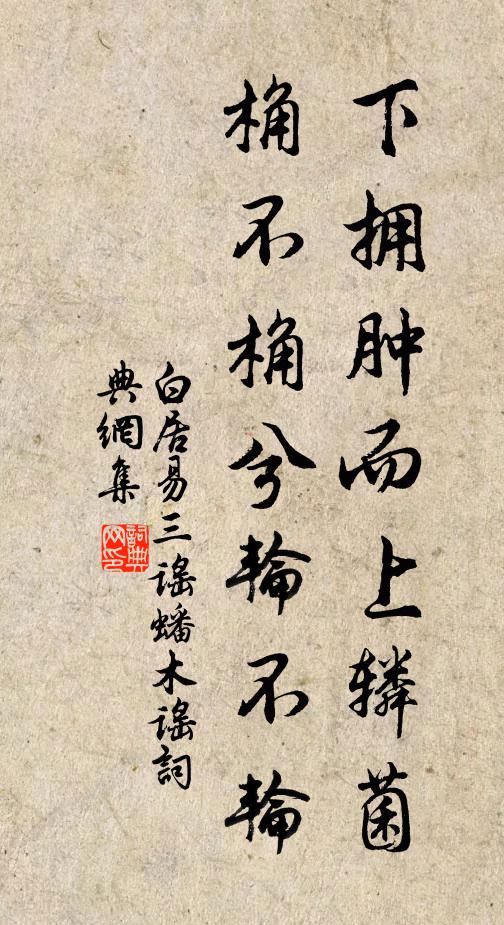 下拥肿而上轔菌
桷不桷兮輪不輪
白居易三謠蟠木謠詞
典網集
詞典
网印